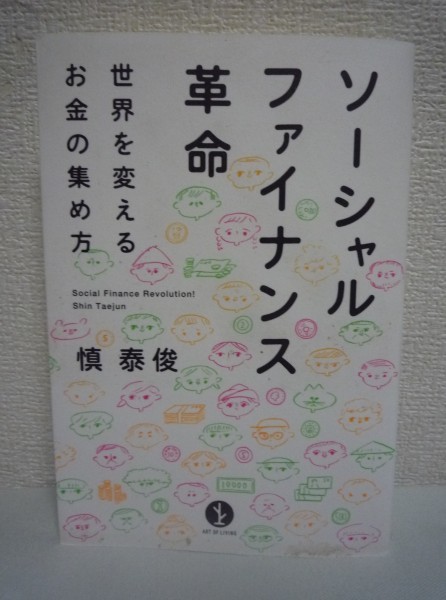 ソーシャル
ファイナンス
革命
世界を変える
お金の集め方
Social Finance Revolution!
Shin Taejun
慎 泰俊
10000
ART OF LIVING